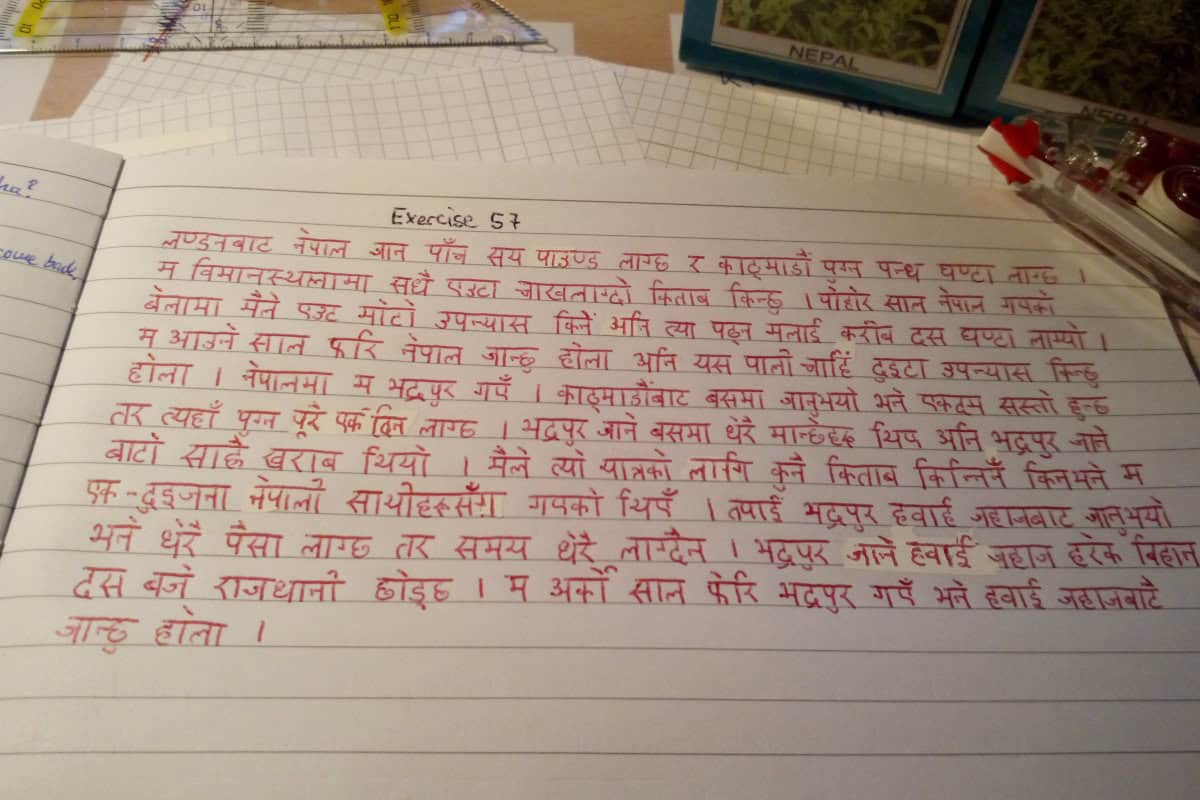 NEPAL
NEPAL
ha?
come back
Exercise 57
लण्डनबाट नेपाल जान पाँच सय पाउण्ड लाग्छ र काठ्माडौं पुग्न पन्ध्र घण्टा लाग्छ ।
म विमानस्थलामा सधै एउटा चाखलाग्दो किताब किन्छु । पोहोर साल नेपाल गएको
बेलामा मैले एउट मोटो उपन्यास किनें अनि त्यो पढ्न मलाई करीब दस घण्टा लाग्यो ।
म आउने साल फेरि नेपाल जान्छु होला अनि यस पालो चाहिं दुइटा उपन्यास किन्छु
होला । नेपालमा म भद्रपुर गएँ । काठ्माडौंबाट बसमा जानुभयो भने एकदम सस्तो हुन्छ
तर त्यहाँ पुग्न पूरै एक दिन लाग्छ । भद्रपुर जाने बसमा धेरै मान्छेहरू थिए अनि भद्रपुर जाने
बाटो साह्रै खराब थियो । मैले त्यो यात्रको लागि कुनै किताब किन्निनँ किनभने म
एक-दुइजना नेपाली साथीहरूसँग गएको थिएँ । तपाईं भद्रपुर हवाई जहाजबाट जानुभयो
भने धेरै पैसा लाग्छ तर समय धेरै लाग्दैन । भद्रपुर जाने हवाई जहाज हरेक बिहान
दस बजे राजधानी छोड्छ । म अर्को साल फेरि भद्रपुर गएँ भने हवाई जहाजबाटै
जान्छु होला ।